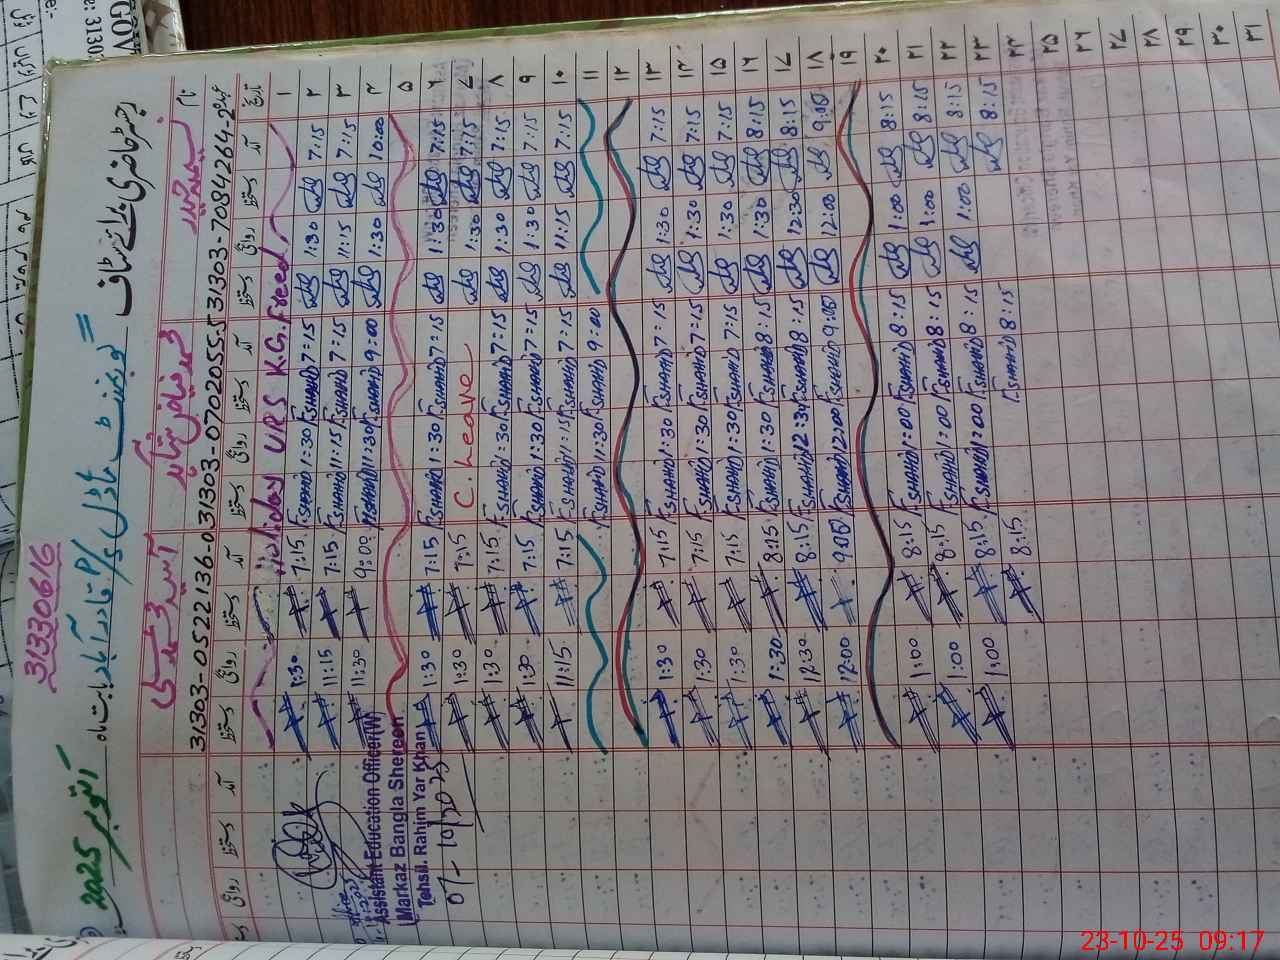 31330616
گورنمنٹ ماڈل P/S قادر آباد بابت ماہ اکتوبر 2025
رجسٹر حاضری مدارس سٹاف
نام
محمد فیاض شاہد
31303-7084264-2
31303-0702055-5
31303-0522136-0
تاریخ آمد دستخط روانگی دستخط آمد دستخط روانگی دستخط آمد دستخط روانگی دستخط آمد دستخط روانگی
۱ Holiday URS K.G. Freed
۲ 7:15 1:30 7:15 F.SHAHID 1:30 F.SHAHID 7:15 1:30
۳ 7:15 11:15 7:15 F.SHAHID 11:15 F.SHAHID 7:15 11:15
۴ 10:00 1:30 9:00 F.SHAHID 11:30 F.SHAHID 9:00 11:30
۵
۶ 7:15 1:30 7:15 F.SHAHID 1:30 F.SHAHID 7:15 1:30
۷ 7:15 1:30 C. Leave 7:15 1:30
۸ 7:15 1:30 7:15 F.SHAHID 1:30 F.SHAHID 7:15 1:30
۹ 7:15 1:30 7:15 F.SHAHID 1:30 F.SHAHID 7:15 1:30
۱۰ 7:15 11:15 7:15 F.SHAHID 11:15 F.SHAHID 7:15 11:15
۱۱ 9:00 F.SHAHID 11:30 F.SHAHID
۱۲
۱۳ 7:15 1:30 7:15 F.SHAHID 1:30 F.SHAHID 7:15 1:30
۱۴ 7:15 1:30 7:15 F.SHAHID 1:30 F.SHAHID 7:15 1:30
۱۵ 7:15 1:30 7:15 F.SHAHID 1:30 F.SHAHID 7:15 1:30
۱۶ 8:15 1:30 8:15 F.SHAHID 1:30 F.SHAHID 8:15 1:30
۱۷ 8:15 12:30 8:15 F.SHAHID 12:30 F.SHAHID 8:15 12:30
۱۸ 9:00 12:00 9:00 F.SHAHID 12:00 F.SHAHID 9:00 12:00
۱۹
۲۰ 8:15 1:00 8:15 F.SHAHID 1:00 F.SHAHID 8:15 1:00
۲۱ 8:15 1:00 8:15 F.SHAHID 1:00 F.SHAHID 8:15 1:00
۲۲ 8:15 1:00 8:15 F.SHAHID 1:00 F.SHAHID 8:15 1:00
۲۳ 8:15 8:15 F.SHAHID 8:15
۲۴
۲۵
۲۶
۲۷
۲۸
۲۹
۳۰
۳۱
Assistant Education Officer(W)
Markaz Bangla Shereen
Tehsil. Rahim Yar Khan
07-10/2025
23-10-25 09:17